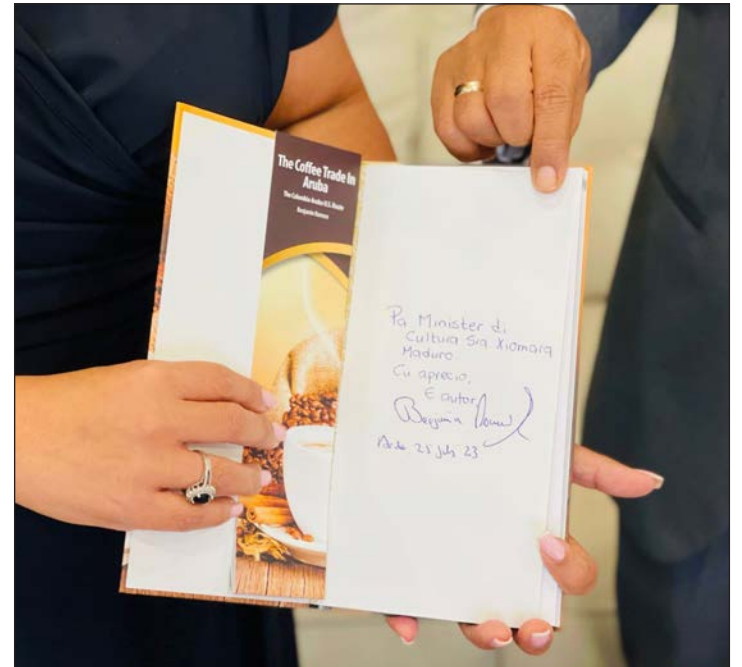 The Coffee Trade In
Aruba
The Colombia-Aruba-U.S. Route
Benjamin Romero
Pa Minister di
Cultura Sra Xiomara
Maduro
Cu aprecio,
E autor
Benjamin
25 july 23